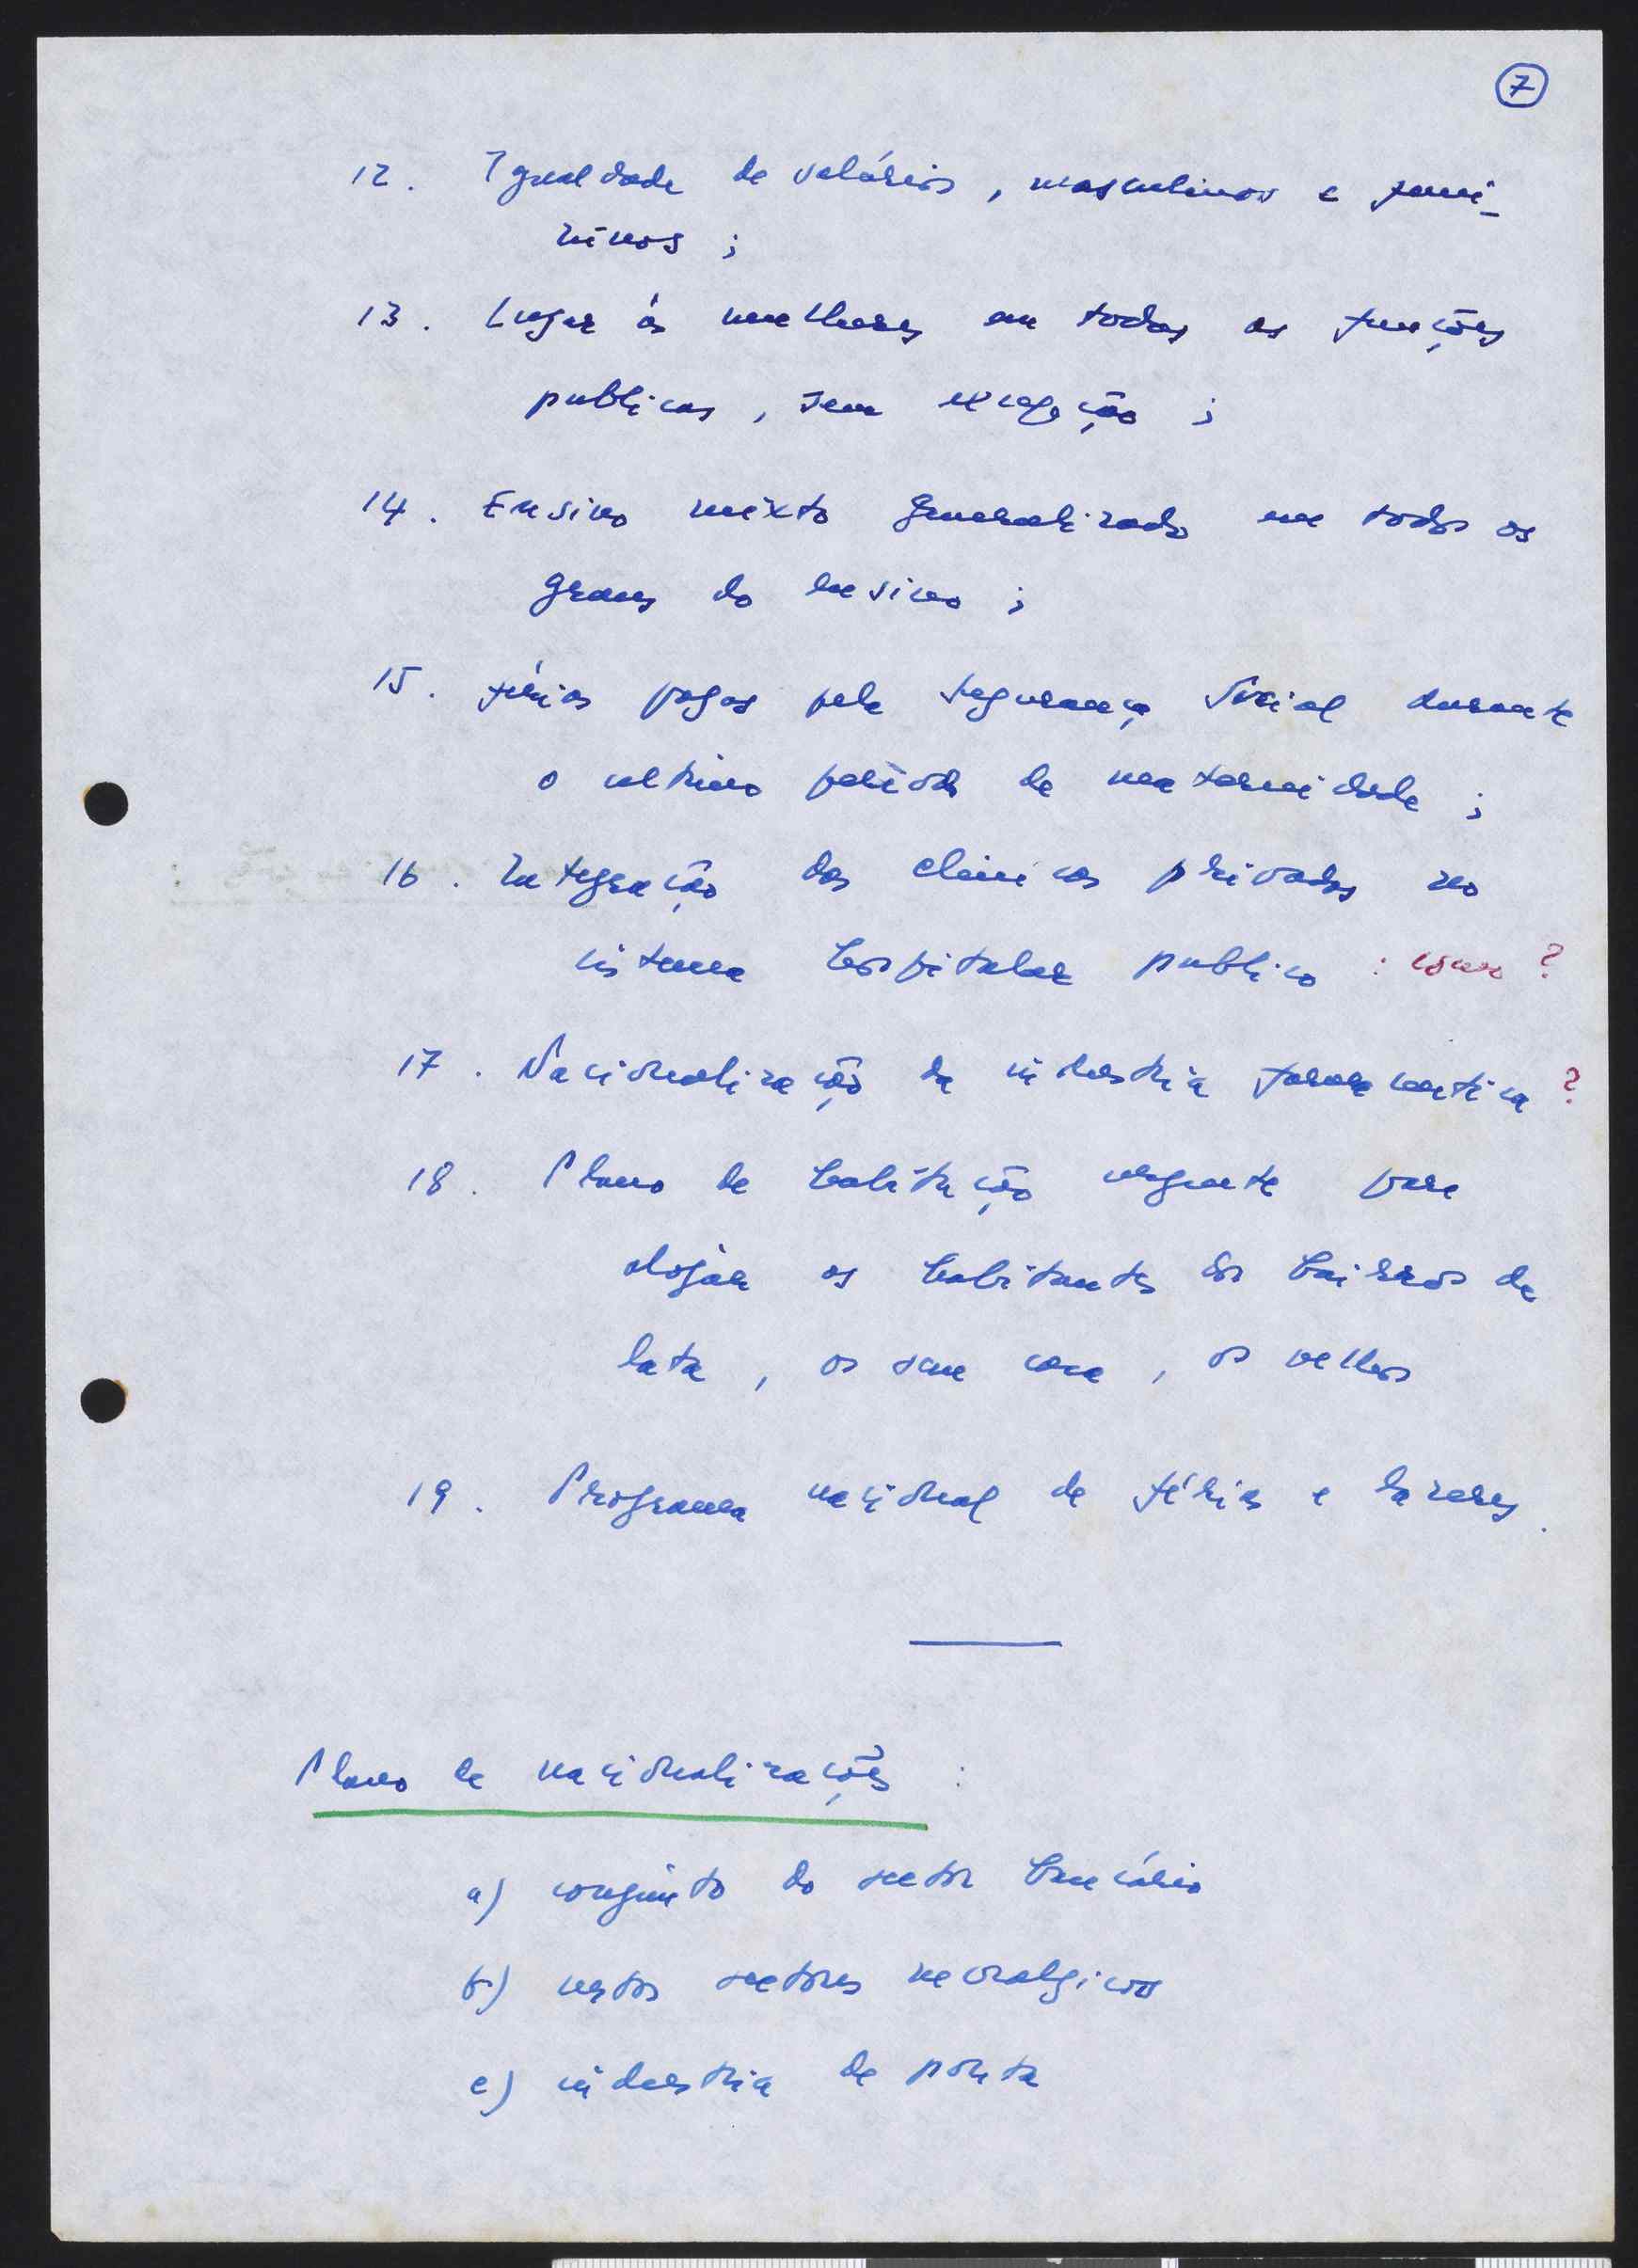 7
12. Igualdade de salários, masculinos e femi-
ninos ;
13. Lugar às mulheres em todas as funções
publicas, sem excepção ;
14. Ensino mixto generalizado em todos os
graus do ensino ;
15. férias pagas pela Segurança Social durante
o ultimo período de maternidade ;
16. Integração das clinicas privadas no
sistema hospitalar publico : como ?
17. Nacionalização da industria farmaceutica ?
18. Plano de habitação urgente para
alojar os habitantes dos bairros de
lata, os sem casa, os velhos
19. Programa nacional de férias e lazeres.
Plano de nacionalizações :
a) conjunto do sector bancário
b) sectores nevralgicos
c) industria de ponta